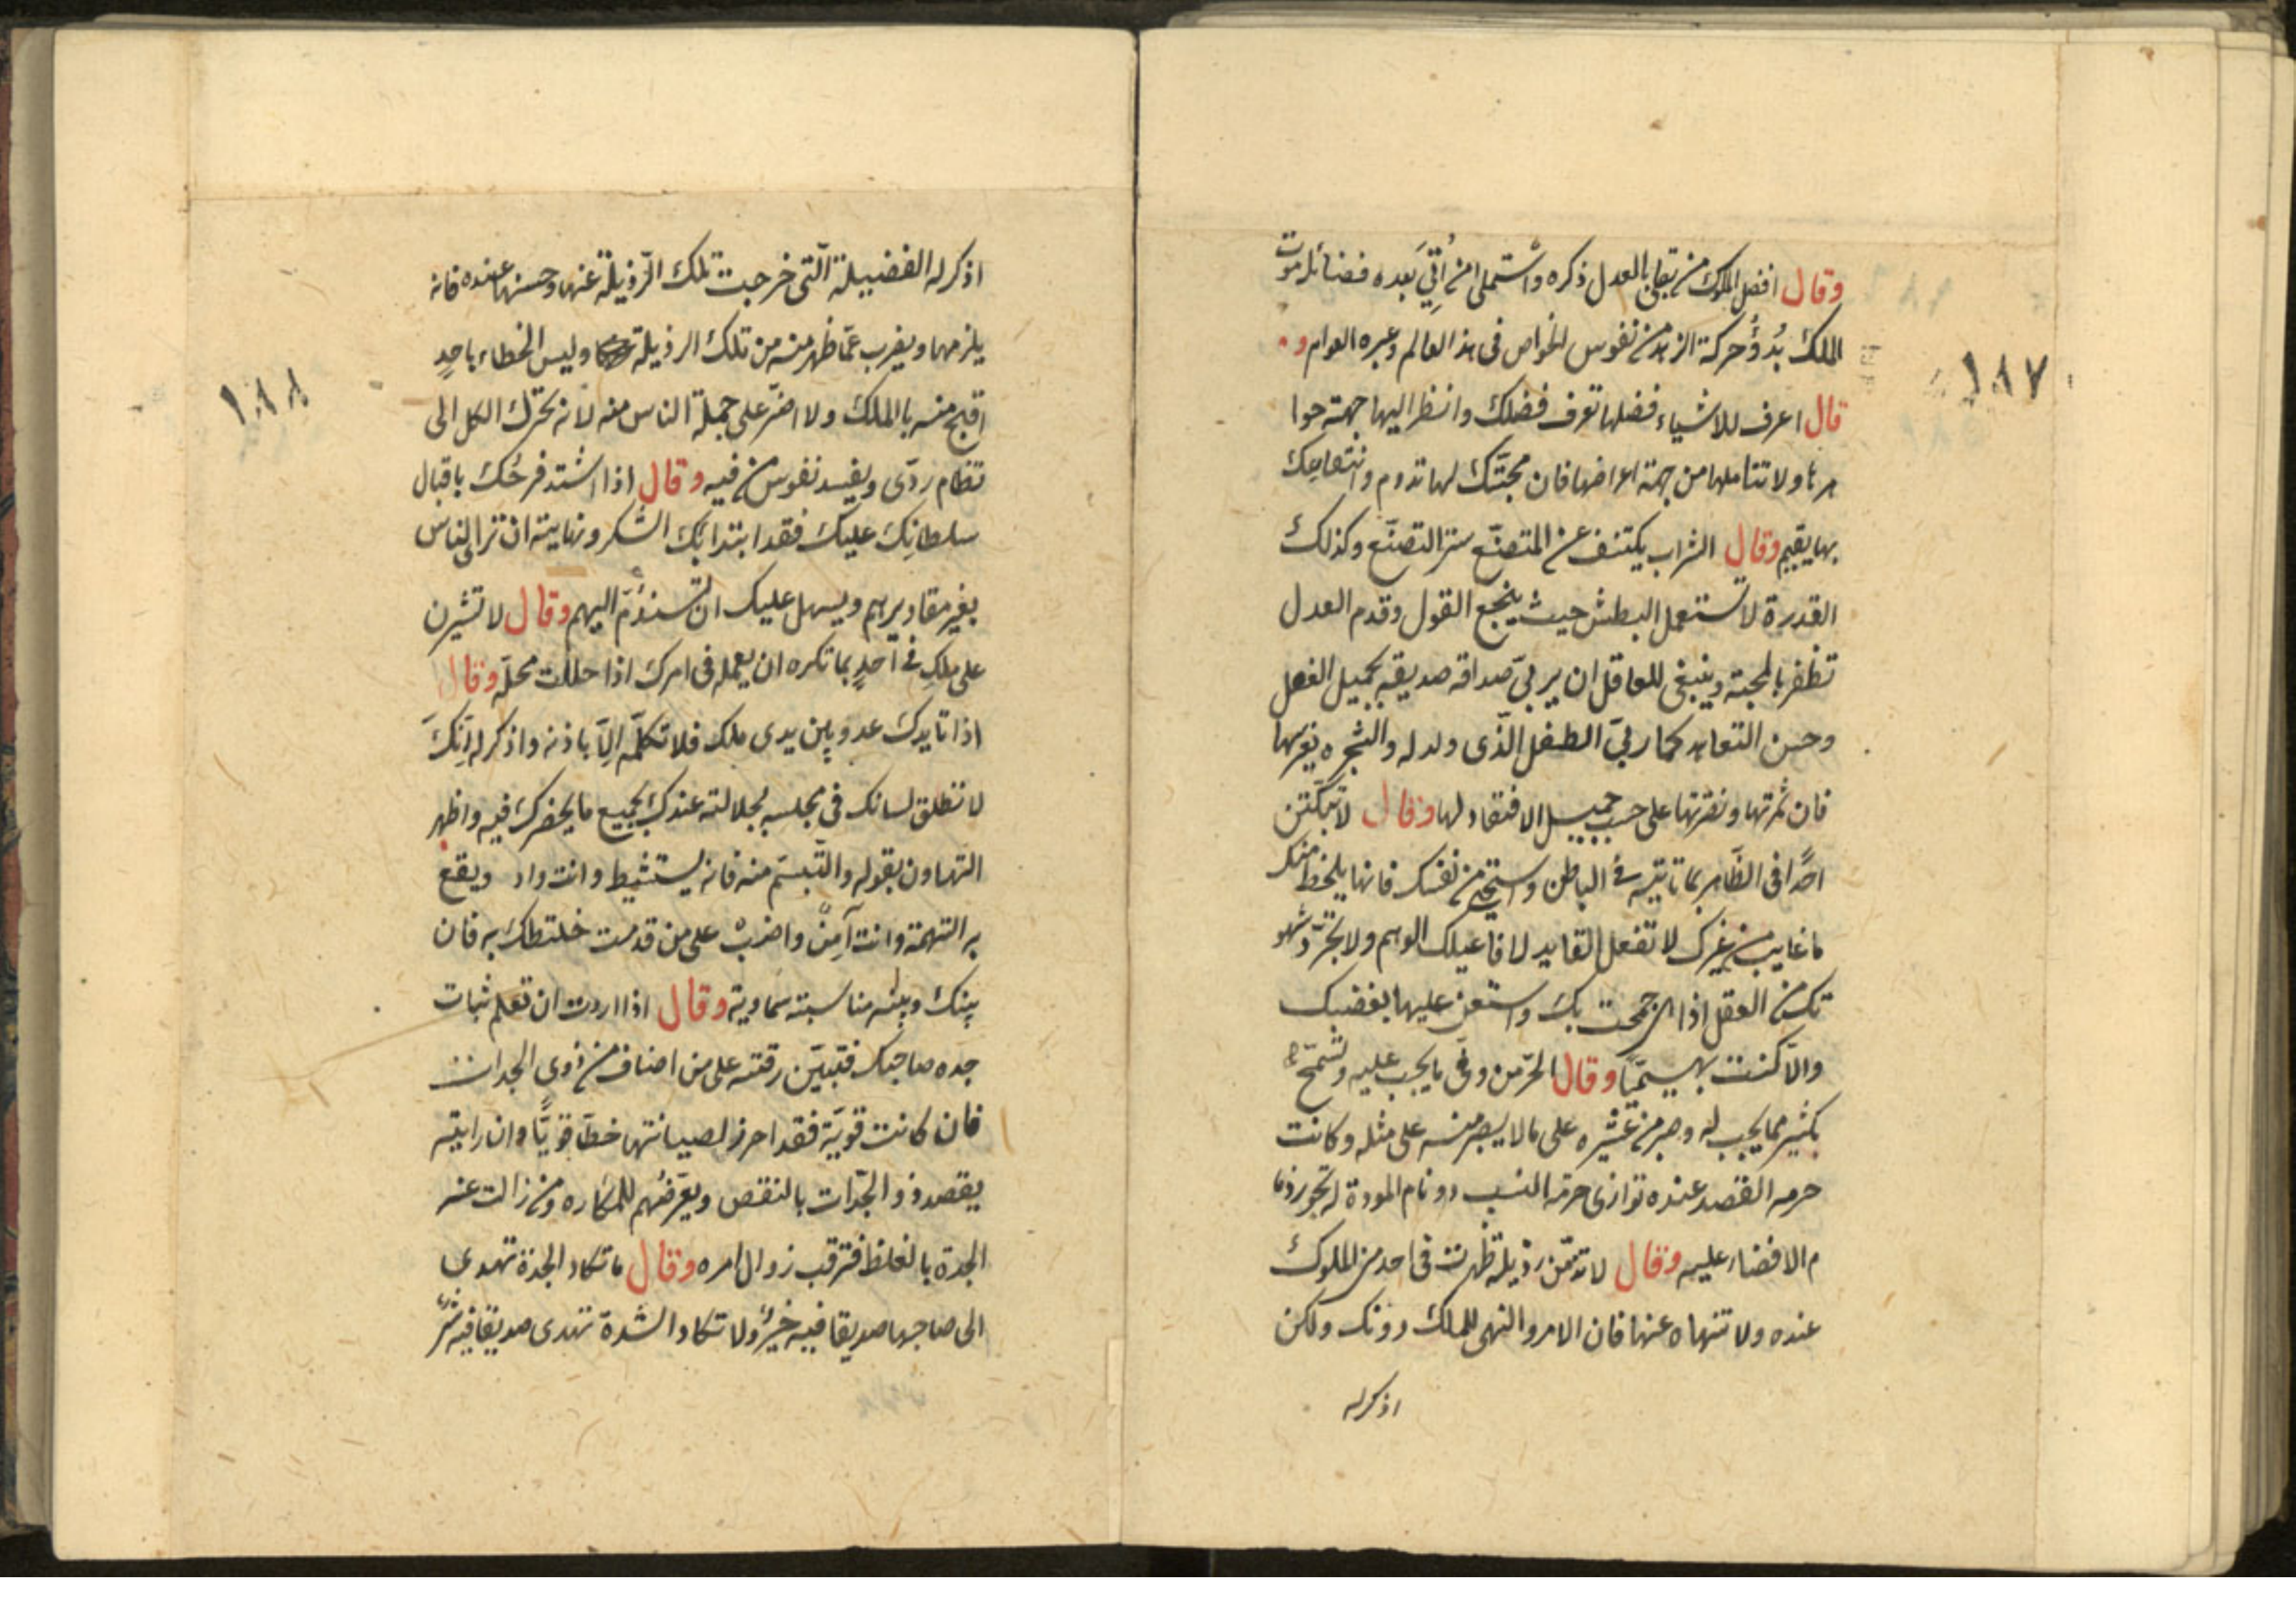 وقال افضل الملوك من بقى بالعدل ذكره واستملى من اتى بعده فضائله موت
الملك بدؤ حركة الزهد من نفوس الخواص فى هذا العالم وعبره العوام و
قال اعرف للاشياء فضلها تعرف فضلك وانظر اليها جهته حوا
هرها ولا تتاملها من جهة اعراضها فان محبتك لها تدوم وانتفاعك
بها يقيم وقال الشراب يكشف عن المتصنع ستر التصنع وكذلك
القدرة لا تستعمل البطش حيث ينجع القول وقدم العدل
تظفر بالمحبته وينبغى للعاقل ان يربى صداقه صديقه بجميل الفعل
وحسن التعاهد كما ربى الطفل الذى ولد له والشجره يغرسها
فان ثمرتها ونضرتها على حسب جميل الافتقاد لها وقال لا تبكتن
احدا فى الظاهر بما تاتيه فى الباطن واستحى من نفسك فانها يلحظ منك
ما غاب من غيرك لا تفعل القايد لافاعيلك الوهم ولا تجرد شهو
تك من العقل اذا هى جمحت بك واستعن عليها بغضبك
والا كنت بهيميا وقال الحر من وفى ما يجب عليه وتسمح
بكثير مما يجب له وصبر من عشيره على ما لا يصبر منه على مثله وكانت
حرمه القصد عنده توازى حرمة النسب وذمام المودة له تجوز ذما
م الافضاء عليه وقال لا تذمن رذيلة ظهرت فى احد من الملوك
عنده ولا تنهاه عنها فان الامر والنهى للملك دونك ولكن
اذكر له
١٨٧
اذكر له الفضيلة التى خرجت تلك الرذيلة عنها وحسنها عنده فانه
يلزمها ويضرب عما ظهر منه من تلك الرذيلة وليس الخطاء باحد
اقبح منه بالملك ولا اضر على جملة الناس منه لانه يحرك الكل الى
نظام ردى ويفسد نفوس من فيه وقال اذا اشتد فرحك باقبال
سلطانك عليك فقد ابتدا بك السكر ونهايته ان ترا الناس
بغير مقاديرهم ويسهل عليك ان تستذم اليهم وقال لا تشيرن
على ملك فى احد بما تكره ان يعمله فى امرك اذا حللت محله وقال
اذا تايدك عدو بين يدى ملك فلا تكلمه الا باذنه واذكر له انك
لا تطلق لسانك فى مجلسه لجلالته عندك بجميع ما يحضرك فيه واظهر
التهاون بقوله والتبسم منه فانه يستشيط وانت واد ويقع
به التهمة وانت آمن واضب على من قدمت خلتطك به فان
بينك وبينه مناسبته سماوية وقال اذا اردت ان تعلم ثبات
جده صاحبك فتبين رقته على من اضاف من ذوى الجدات
فان كانت قوية فقد احرز لصيانتها خطا قويا وان رايته
يقصد ذو الجدات بالنقص ويعرضهم للمكاره ومن زالت عنه
الجدة بالغلظ فترقب زوال امره وقال ما تكاد الجدة تهدى
الى صاحبها صديقا فيه خير ولا تكاد الشدة تهدى صديقا فيه شر
١٨٨